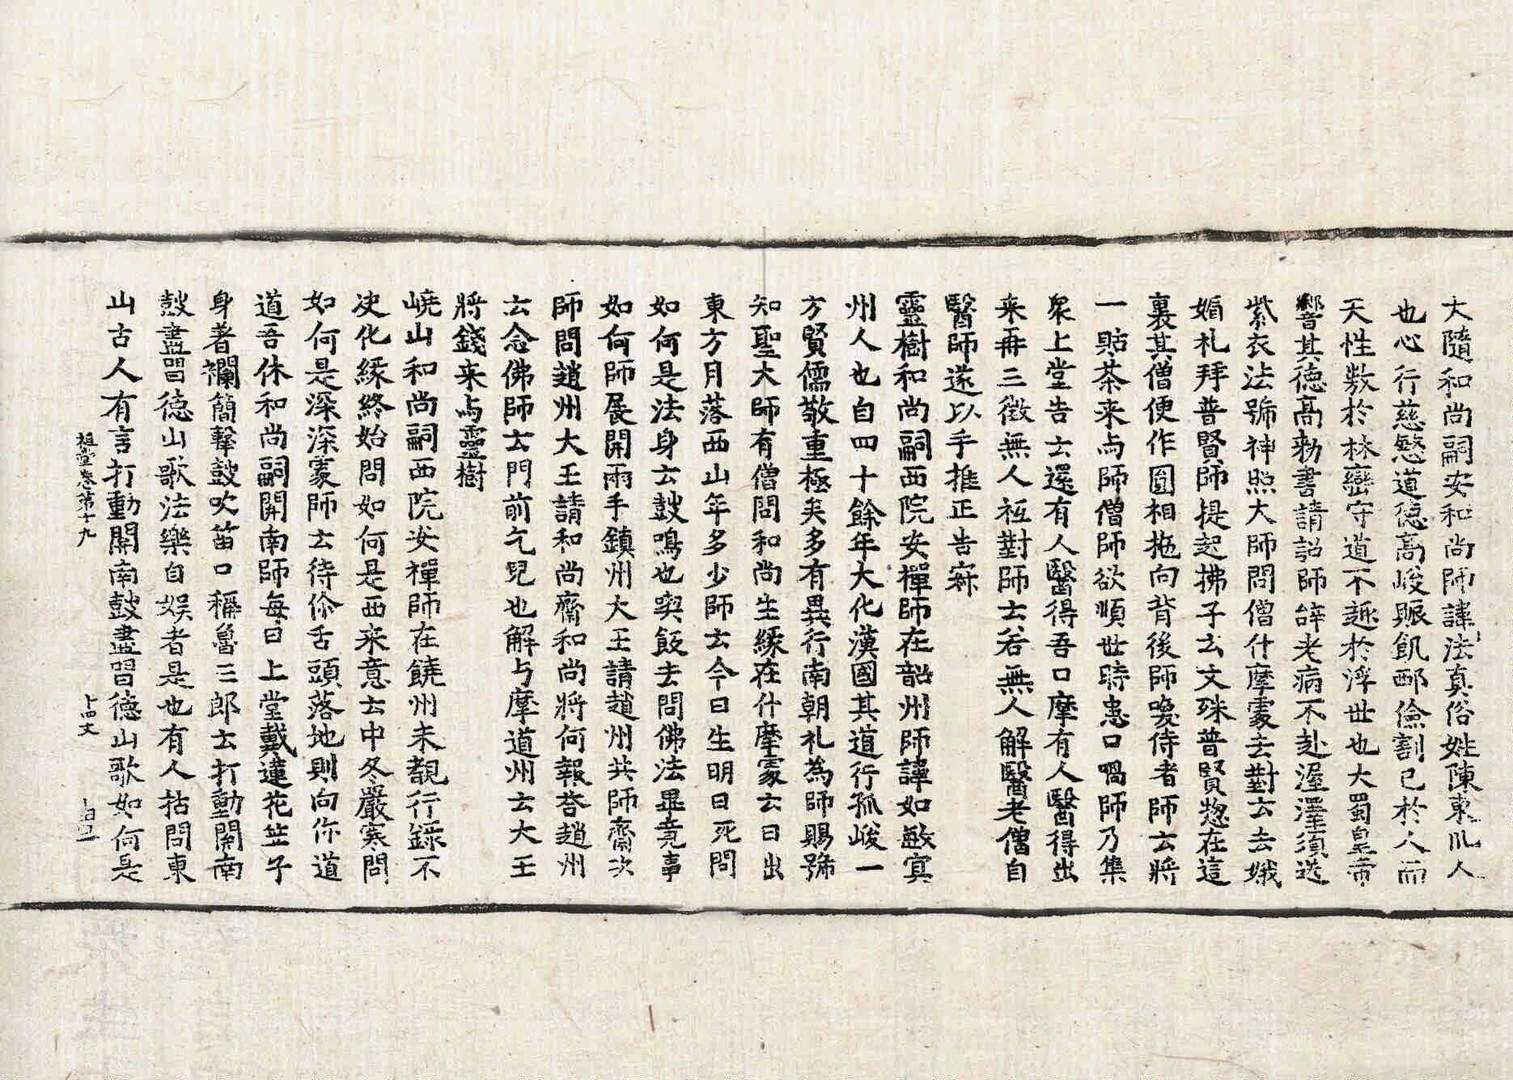 大隨和尚嗣安和尚師諱法真俗姓陳東川人
也心行慈慜道德高峻賑飢郵儉割己於人而
天性敷於林巒守道不趣於浮世也大蜀皇帝
響其德高勅書請詔師辞老病不赴渥澤須送
紫衣法號神照大師問僧什摩處去對云去娥
媚礼拜普賢師提起拂子云文殊普賢惣在這
裏其僧便作圓相抛向背後師喚侍者師云將
一貼茶来与師僧師欲順世時患口喎師乃集
衆上堂告云還有人醫得吾口摩有人醫得出
来再三徴無人祗對師云若無人解醫老僧自
醫師遂以手推正告寂
靈樹和尚嗣西院安禪師在韶州師諱如敏㝠
州人也自四十餘年大化漢國其道行孤峻一
方賢儒敬重極矣多有異行南朝礼為師賜號
知聖大師有僧問和尚生緣在什摩處云日出
東方月落西山年多少師云今日生明日死問
如何是法身云鼓鳴也喫飯去問佛法畢竟事
如何師展開兩手鎮州大王請趙州共師齋次
師問趙州大王請和尚齋和尚將何報荅趙州
云念佛師云門前乞兒也解与摩道州云大王
將錢来与靈樹
嶢山和尚嗣西院安禪師在饒州未覩行錄不
决化緣終始問如何是西来意云中冬嚴寒問
如何是深深處師云待伱舌頭落地則向你道
道吾休和尚嗣關南師每日上堂戴蓮花笠子
身著襴簡擊鼓吹笛口稱魯三郎云打動關南
鼓盡習德山歌法樂自娱者是也有人拈問東
山古人有言打動關南鼓盡習德山歌如何是
祖堂卷第十九
十四丈